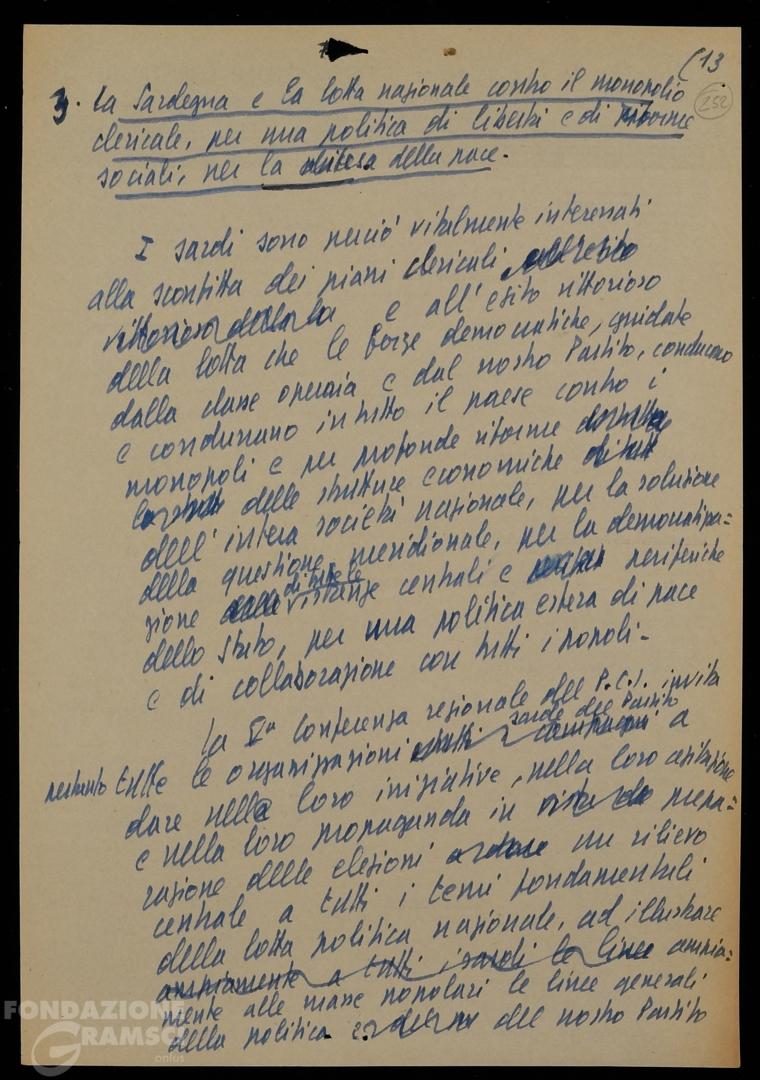 (13
252
3. La Sardegna e la lotta nazionale contro il monopolio
clericale, per una politica di libertà e di riforme
sociali, per la difesa della pace.
I sardi sono perciò vitalmente interessati
alla sconfitta dei piani clericali all'esito
vittorioso della la e all'esito vittorioso
della lotta che le forze democratiche, guidate
dalla classe operaia e dal nostro Partito, conducono
e condurranno in tutto il paese contro i
monopoli e per profonde riforme
delle strutture economiche di tutt
dell'intera società nazionale, per la soluzione
della questione meridionale, per la democratizza=
zione delle istanze centrali e periferiche
dello Stato, per una politica estera di pace
e di collaborazione con tutti i popoli.
La Vª Conferenza regionale del P.C.I. invita
sarde del Partito
pertanto tutte le organizzazioni tutti i compagni a
dare nelle loro iniziative, nella loro agitazione
e nella loro propaganda in vista de prepa=
razione delle elezioni a dare un rilievo
centrale a tutti i temi fondamentali
della lotta politica nazionale, ad illustrare
ampiamente a tutti i sardi le linee ampia=
mente alle masse popolari le linee generali
della politica del nostro Partito
FONDAZIONE
GRAMSCI
onlus